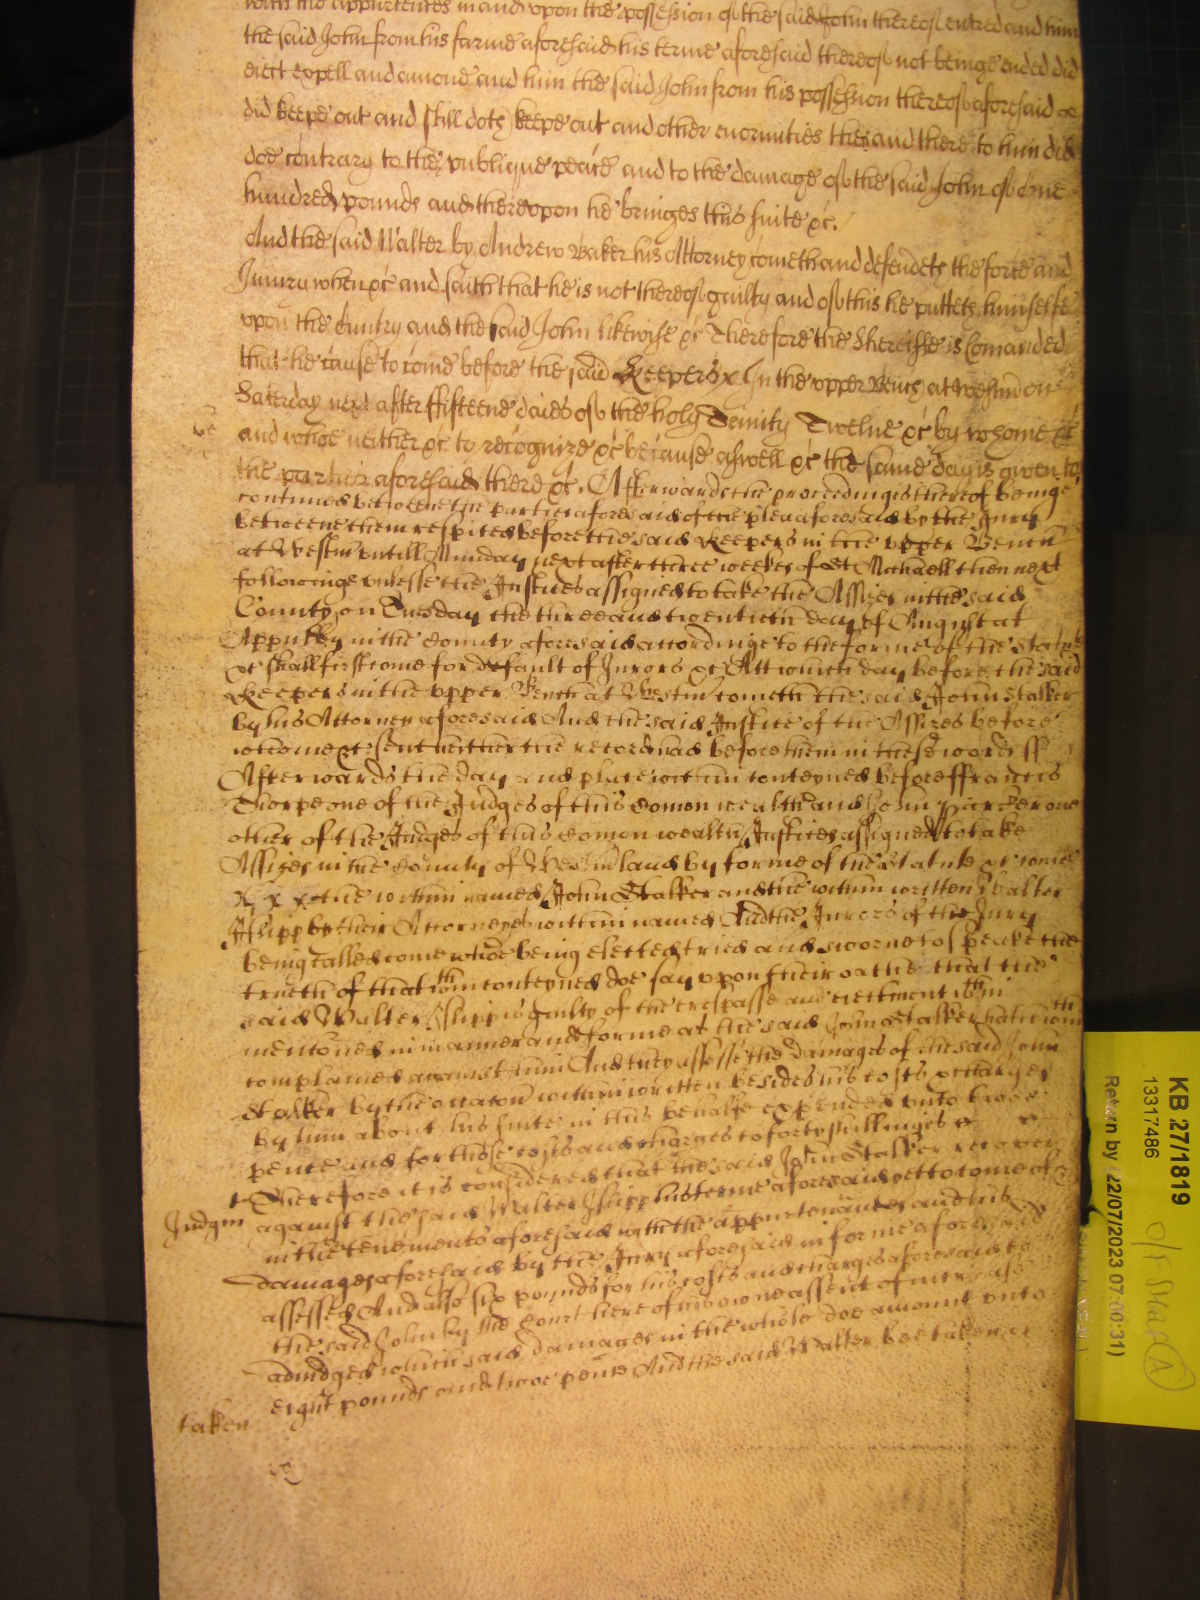 with the appurtences in and upon the possession of the said John thereof entred and him
the said John from his farme aforesaid his terme aforesaid thereof not beinge ended did
eiect expell and amove and him the said John from his possession thereof aforesaid
did keepe out and still doth keepe out and other enormities then and there to him did
doe contrary to the publique peace and to the damage of the said John of one
hundred pounds and thereupon he bringes this suite &c.
And the said Walter by Andrew Baker his Attorney cometh and defendeth the force and
Iniury when &c and saith that he is not thereof guilty and of this he putteth himselfe
upon the Cuntry and the said John likewise &c Therefore the Shereiffe is Comanded
that he cause to come before the said Keepers &c In the upper Bench at Westm on
Saterday next after ffifteene daies of the holy Trinity Twelve &c by whome &c
and whoe neither &c to recognize &c because aswell &c the same day is given to
the parties aforesaid there &c. Afterwards the proceedinges thereof beinge
continued betweene the parties aforesaid of the plea aforesaid by the Jury
betweene them respited before the said Keepers in the upper Bench
at Westm untill Munday next after three weekes of St Michaell then next
followinge unlesse the Justices assigned to take the Assizes in the said
County on Tuesday the three and twentieth day of August at
Appulby in the County aforesaid accordinge to the forme of the Statute
&c shall first come for default of Jurors &c Att which day before the said
Keepers in the upper Bench at Westm cometh the said John Stalker
by his Attorney aforesaid And the said Justices of the Assizes before
whome &c sent hether the record had before them in these words ss
Afterwards the day and place within conteyned before ffrancis
Thorpe one of the Judges of this Comon wealth and John Parker one
other of the Judges of this Comon wealth Justices assigned to take
Assizes in the County of Westmland by forme of the Statute &c come
the within named John Stalker and the within written Walter
Jsupp by their Attorneyes within named And the Jurors of the Jury
being called come whoe being elected tried and sworne to speake the
trueth of the within conteyned doe say uppon their oathe that the
said Walter Jsupp is guilty of the trespasse and eiectment within
mentoned in manner and forme as the said John Stalker hath within
complained against him And they assesse the damages of the said John
Stalker by the occaton within written besides his costs & charges
by him about his suite in this behalfe expended unto twoe
pence and for those costs and charges to forty shillinges &c
Therefore it is considered that the said John Stalker recover
Judgm against the said Walter Jsupp his terme aforesaid yet to come of &
in the tenements aforesaid with the appurtenances and his
damages aforesaid by the Jury aforesaid in forme aforesaid
assessed And also six pounds for his costs and charges aforesaid to
the said John by the Court here of his owne assent of increase
adiudged which said damages in the whole doe amount unto
eight pounds and twoe pence And the said Walter bee taken &c
taken
KB 27/1819
13317486
Return by (22/07/2023 07:00:31)